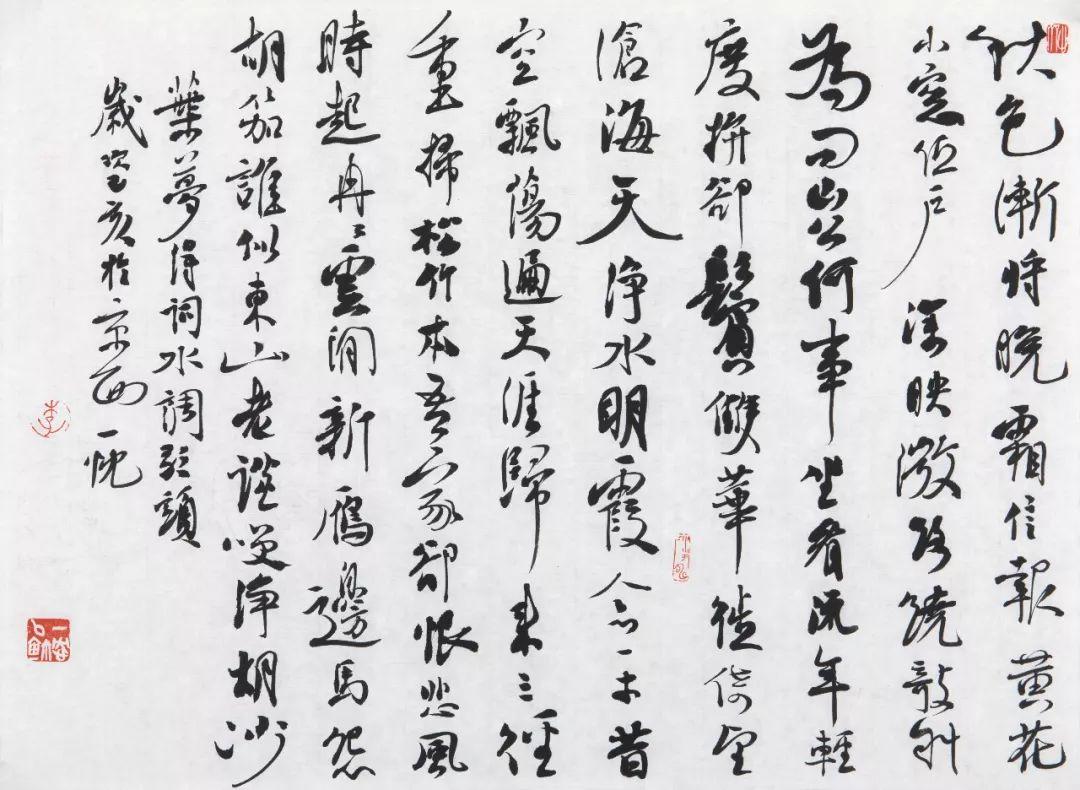 秋色漸將晚霜信報黃花
小窓低户深映微路繞敧斜
為問山公何事坐看流年輕
度拚卻鬢雙華徙倚望
滄海天淨水明霞念平昔
空飄蕩遍天涯歸來三徑
重掃松竹本吾家卻恨悲風
時起冉々雲間新雁邊馬怨
胡笳誰似東山老談笑淨胡沙
葉夢得詞水調歌頭
歲次己亥於京西一忱
李